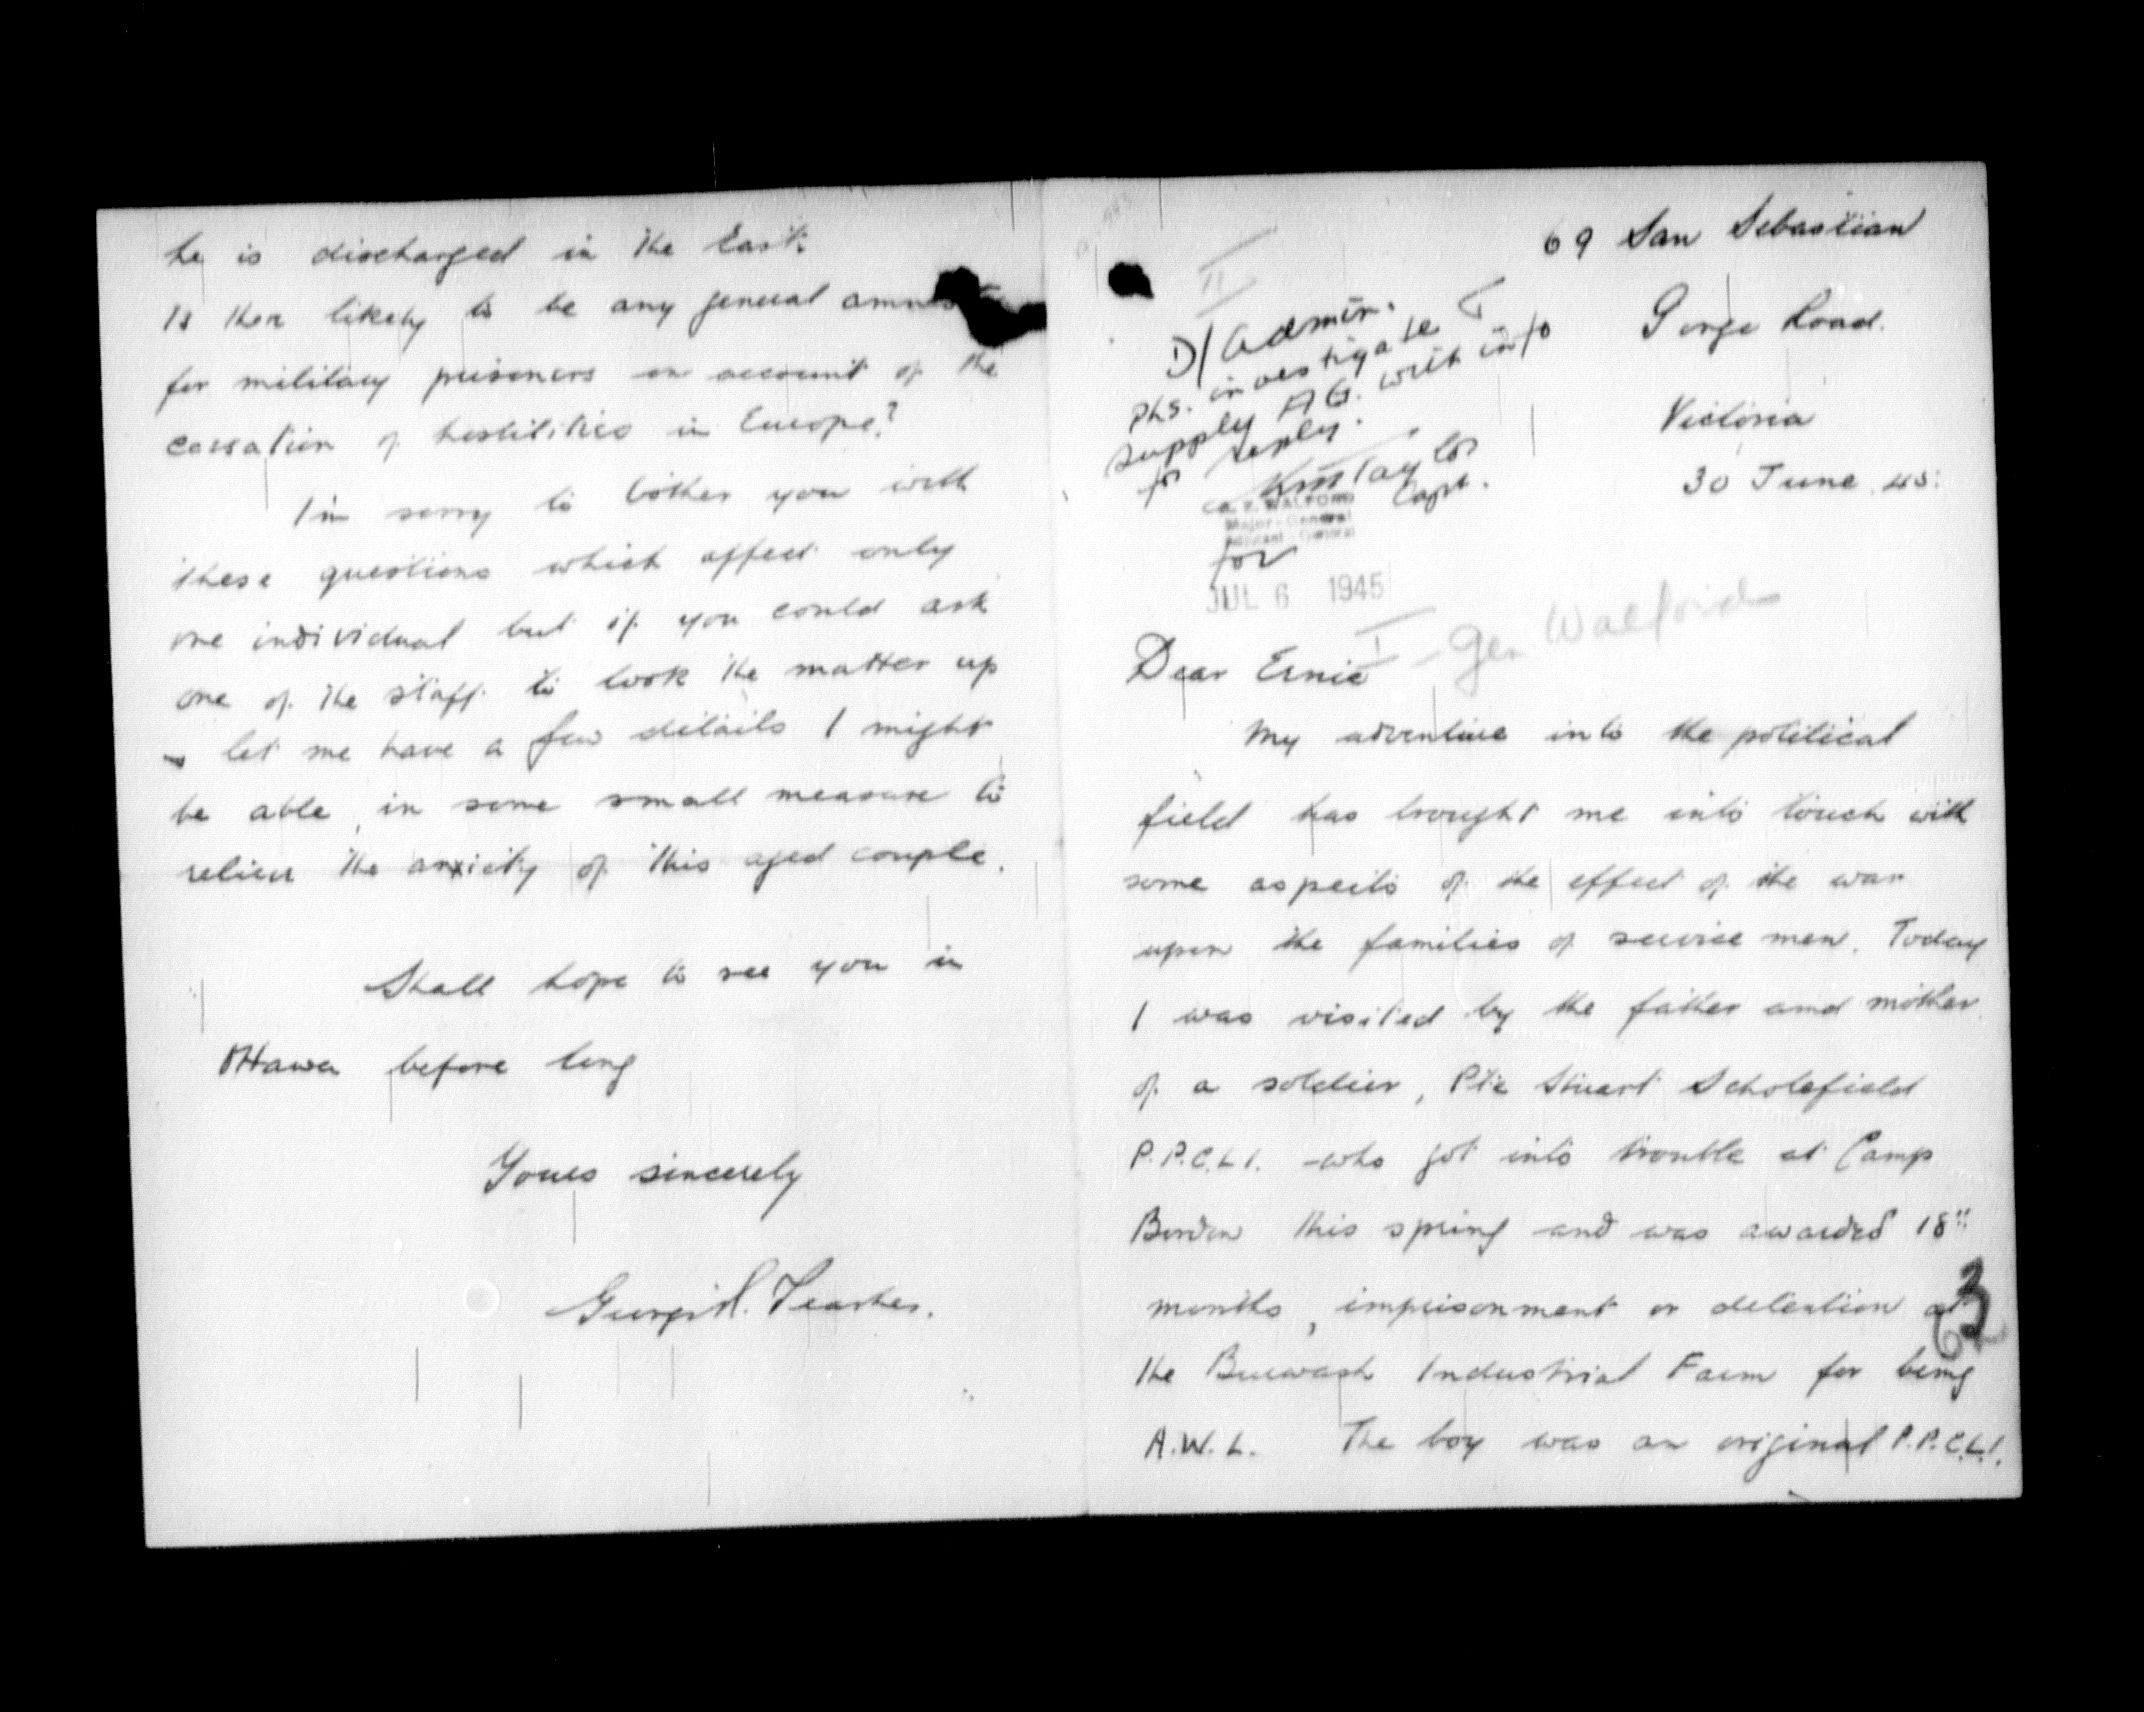 he is discharged in the East.
Is there likely to be any general
for military prisoners on account of the
cessation of hostilities in Europe?
I'm sorry to bother you with
these questions which affect only
one individual but if you could ask
one of the staff to look the matter up
let me have a few details I might
be able, in some small measure to
relieve the anxiety of this aged couple.
Shall hope to see you in
Ottawa before long
Yours sincerely
George R. Pearkes.
69 San Sebastian
Gorge Road.
Victoria
30 June 45.
II
D/Admin.
Pls. investigate &
supply AG. with info
for reply.
KM Taylor
Capt.
E. WALFORD
Major-General
Adjutant-General
for
JUL 6 1945
I - Gen Walford
Dear Ernie
My adventure into the political
field has brought me into touch with
some aspects of the effect of the war
upon the families of service men. Today
I was visited by the father and mother
of a soldier, Pte Stuart Scholefield
P.P.C.L.I. - who got into trouble at Camp
Borden this spring and was awarded 18
months, imprisonment or detention at
the Burwash Industrial Farm for being
A.W.L. The boy was an original P.P.C.L.I.